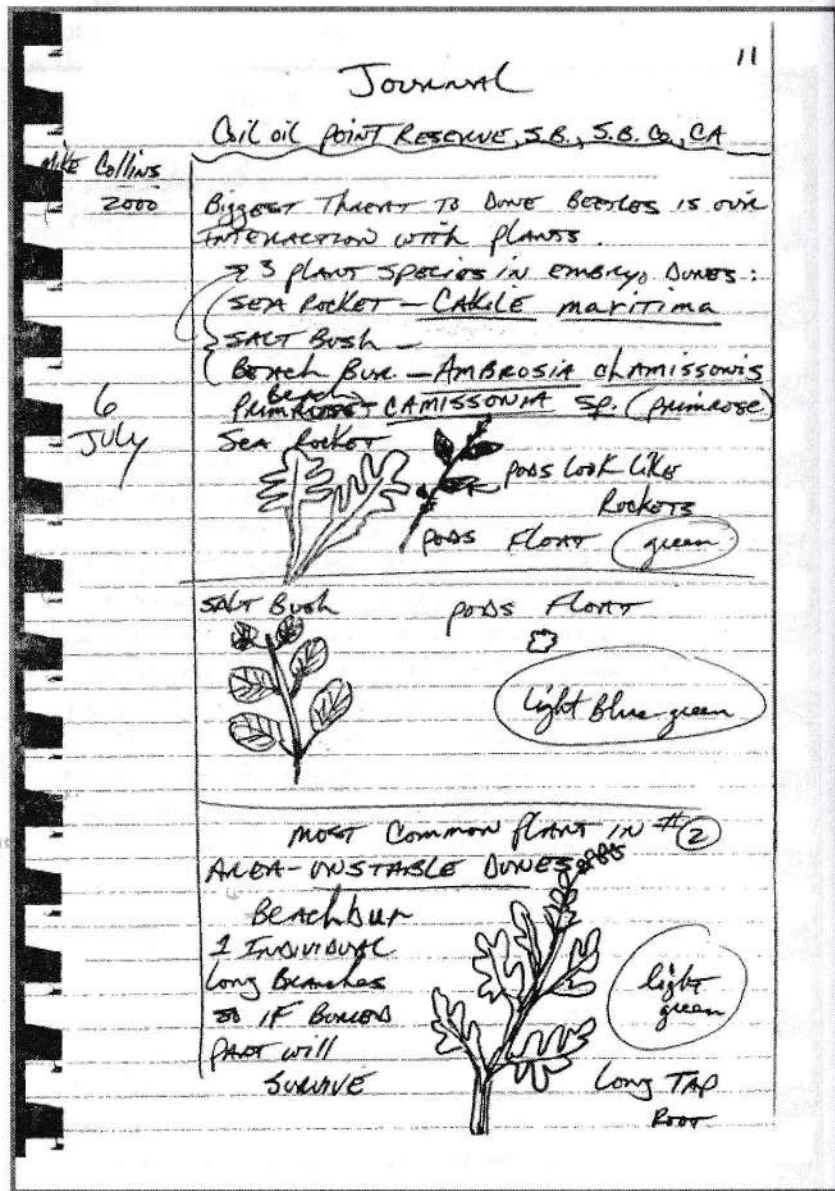 11
JOURNAL
Coil oil POINT RESERVE, S.B., S.B. Co, CA
Mike Collins
2000
BIGGEST THREAT TO DUNE BEETLES IS OUR
INTERACTION WITH PLANTS.
3 PLANT SPECIES IN EMBRYO DUNES:
SEA ROCKET – CAKILE maritima
SALT BUSH –
BEACH BUR – AMBROSIA chAMISSONIS
Beach
PRIMROSE – CAMISSONIA sp. (primrose)
6
July
SEA ROCKET
PODS LOOK LIKE
ROCKETS
PODS FLOAT green
SALT BUSH PODS FLOAT
light Blue-green
MOST COMMON PLANT IN #2
AREA – UNSTABLE DUNES
BEACHbur
1 INDIVIDUAL
long Branches
SO IF BURIED
PART will
SURVIVE
light
green
long TAP
ROOT